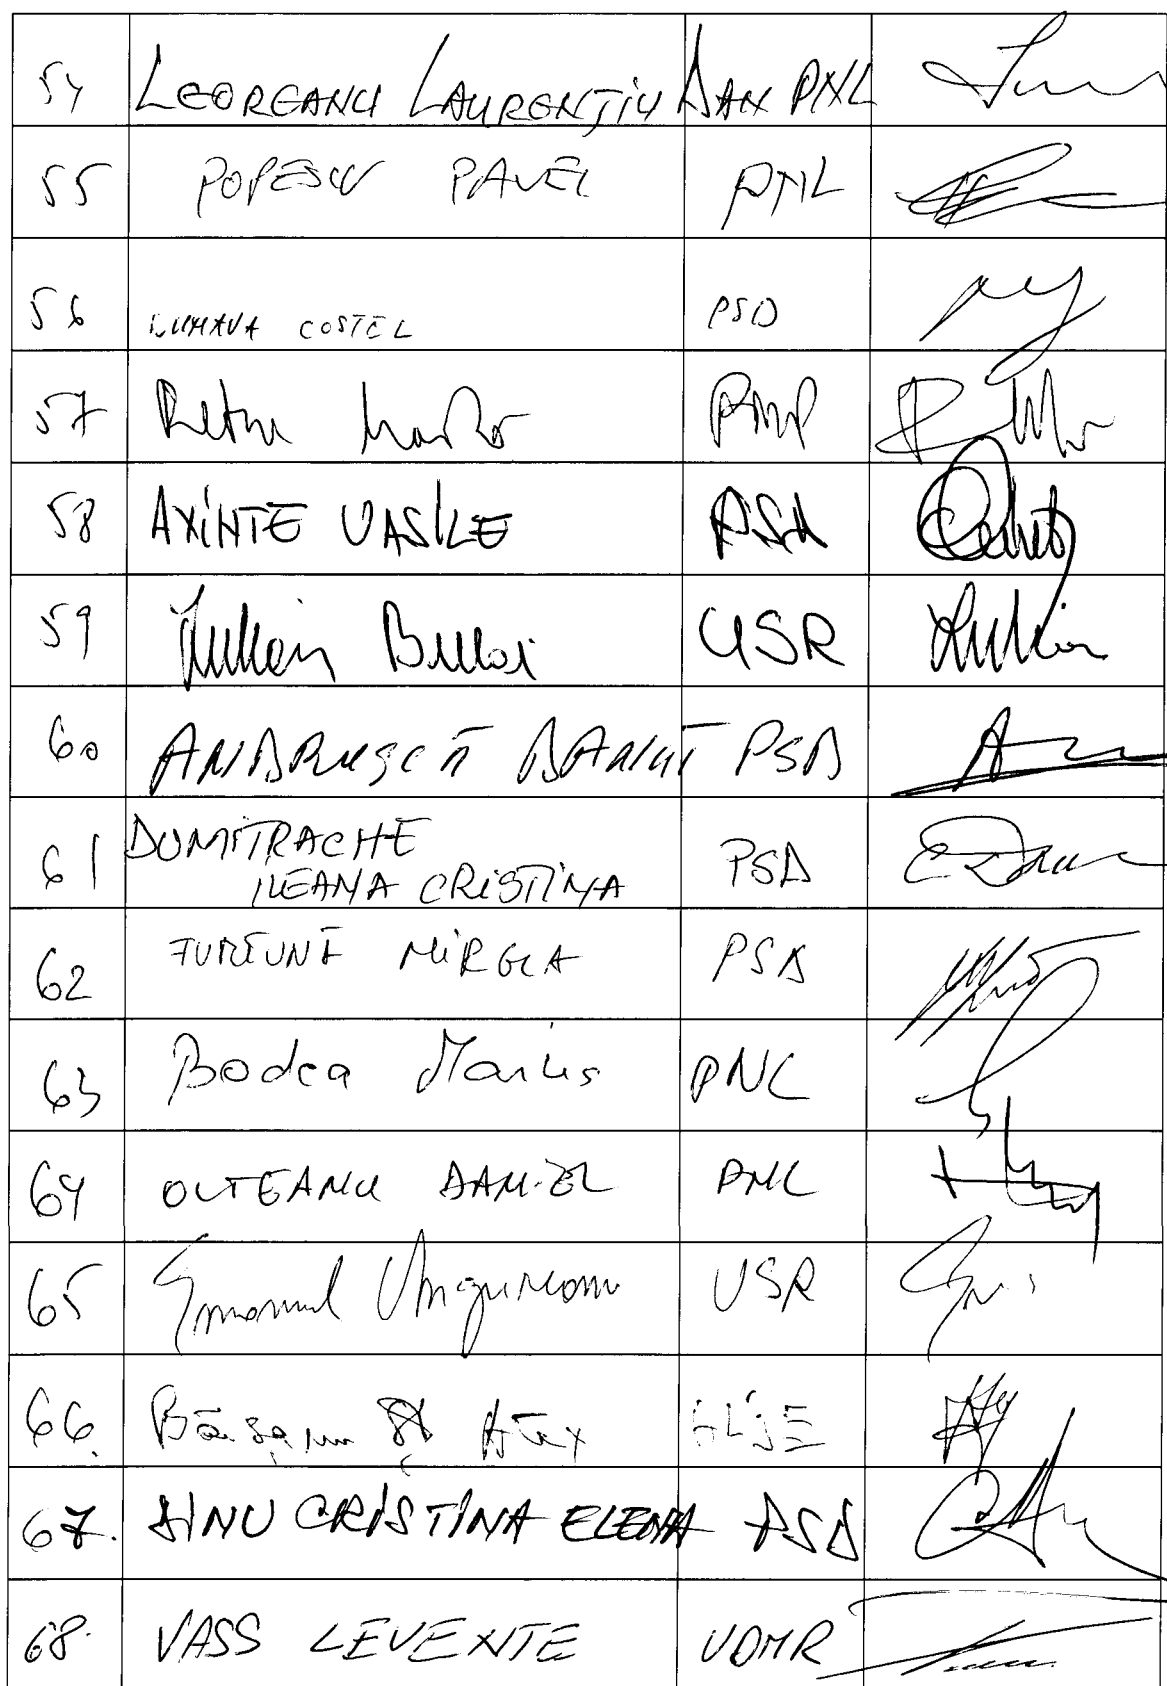 54 LEOREANU LAURENȚIU DAN PNL
55 POPESCU PAVEL PNL
56 LUNCAȘU COSTEL PSD
57 Petru Movilă PMP
58 AXINTE VASILE PSD
59 Iulian Bulai USR
60 ANDRUȘCĂ DĂNUȚ PSD
61 DUMITRACHE
ILEANA CRISTINA PSD
62 FURTUNĂ MIRELA PSD
63 Bodea Marius PNL
64 OLTEANU DANIEL PNL
65 Emanuel Ungureanu USR
66. ALDE
67. DINU CRISTINA ELENA PSD
68. VASS LEVENTE UDMR